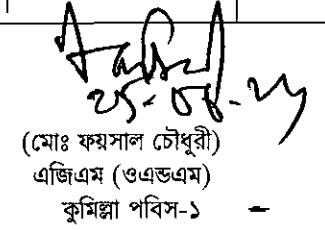 (মোঃ ফয়সাল চৌধুরী)
এজিএম (ওএন্ডএম)
কুমিল্লা পবিস-১